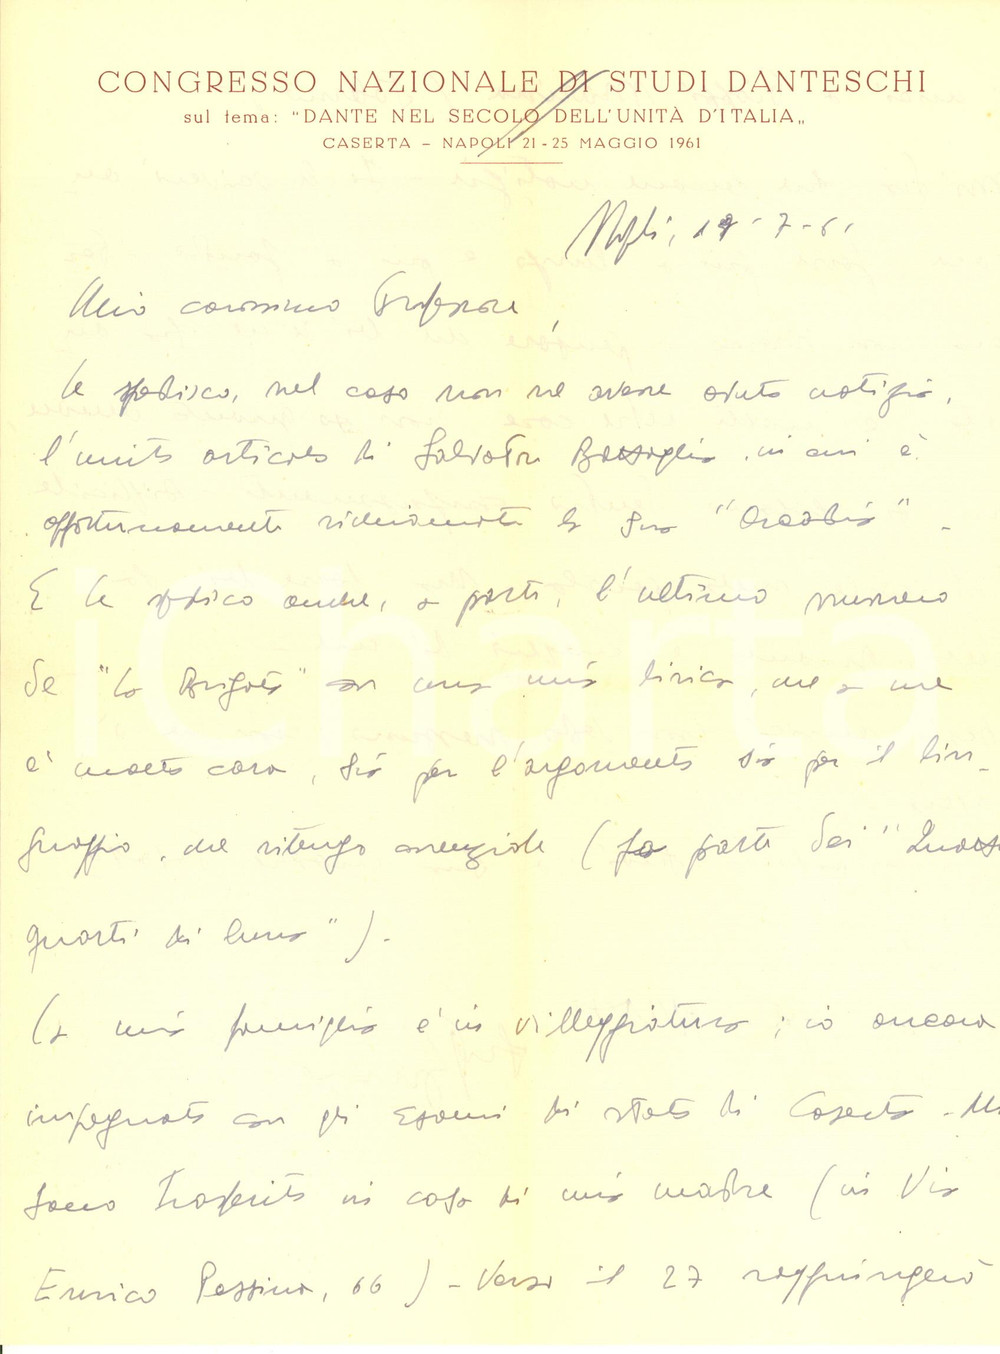 CONGRESSO NAZIONALE DI STUDI DANTESCHI
sul tema: "DANTE NEL SECOLO DELL'UNITÀ D'ITALIA„
CASERTA - NAPOLI 21 - 25 MAGGIO 1961
Napoli, 19-7-61
Mio carissimo Professore,
Le spedisco, nel caso non ne avesse avuto notizia,
l'unito articolo di Salvatore Battaglia, in cui è
opportunamente richiamata la Sua "Arcadia" -
E Le spedisco anche, a parte, l'ultimo numero
de "La Brigata" con una mia lirica, che a me
è molto cara, sia per l'argomento sia per il lin-
guaggio, che ritengo essenziale (fa parte dei
quarti di luna") -
La mia famiglia è in villeggiatura; io ancora
impegnato con gli Esami di stato di Caserta - Mi
sono trasferito in casa di mia madre (in Via
Enrico Pessina, 66) - Verso il 27 raggiungerò
iCharta